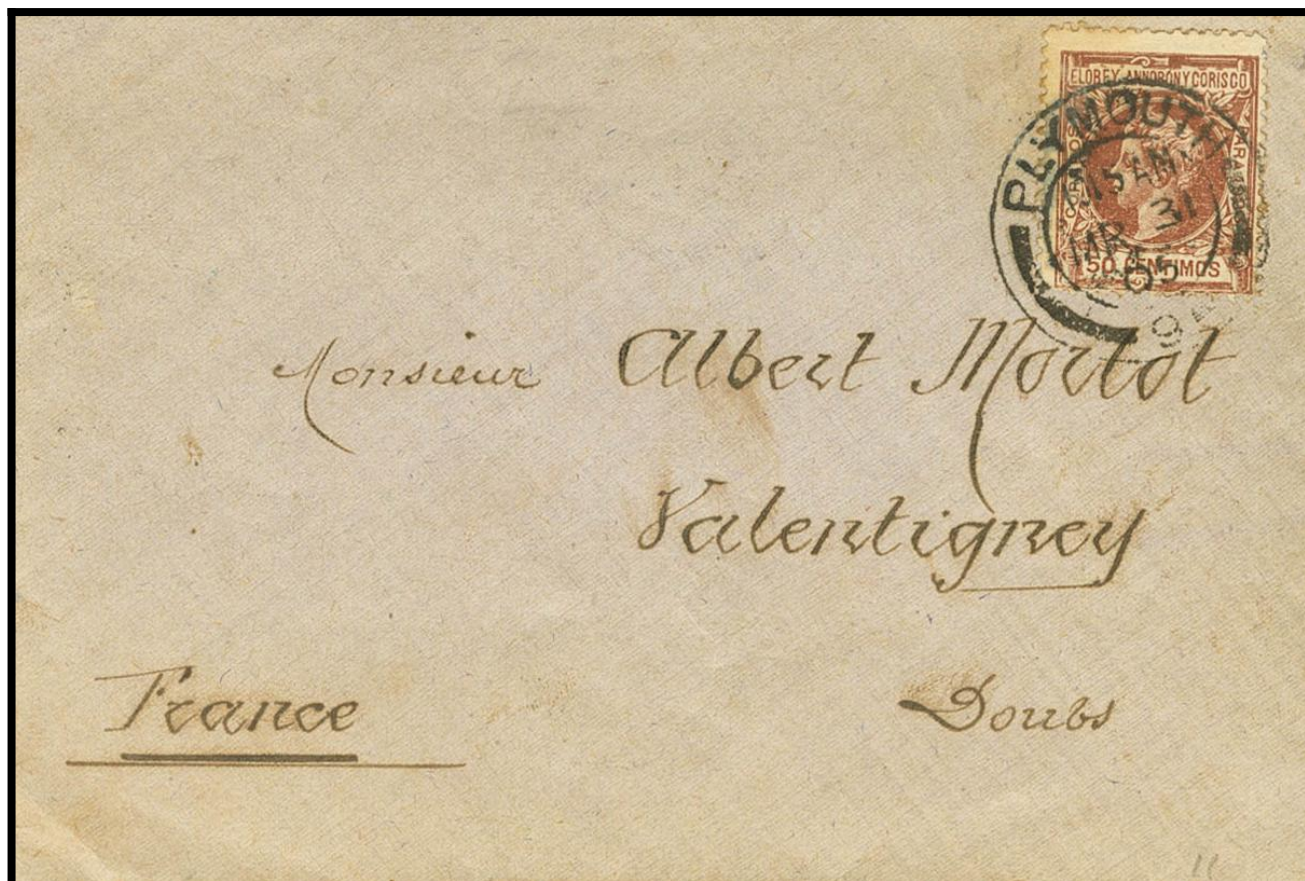 ELOBEY, ANNOBON Y CORISCO
PLYMOUTH
MR 31
05
50 CENTIMOS
Monsieur Albert Mortot
Valentigney
France Doubs